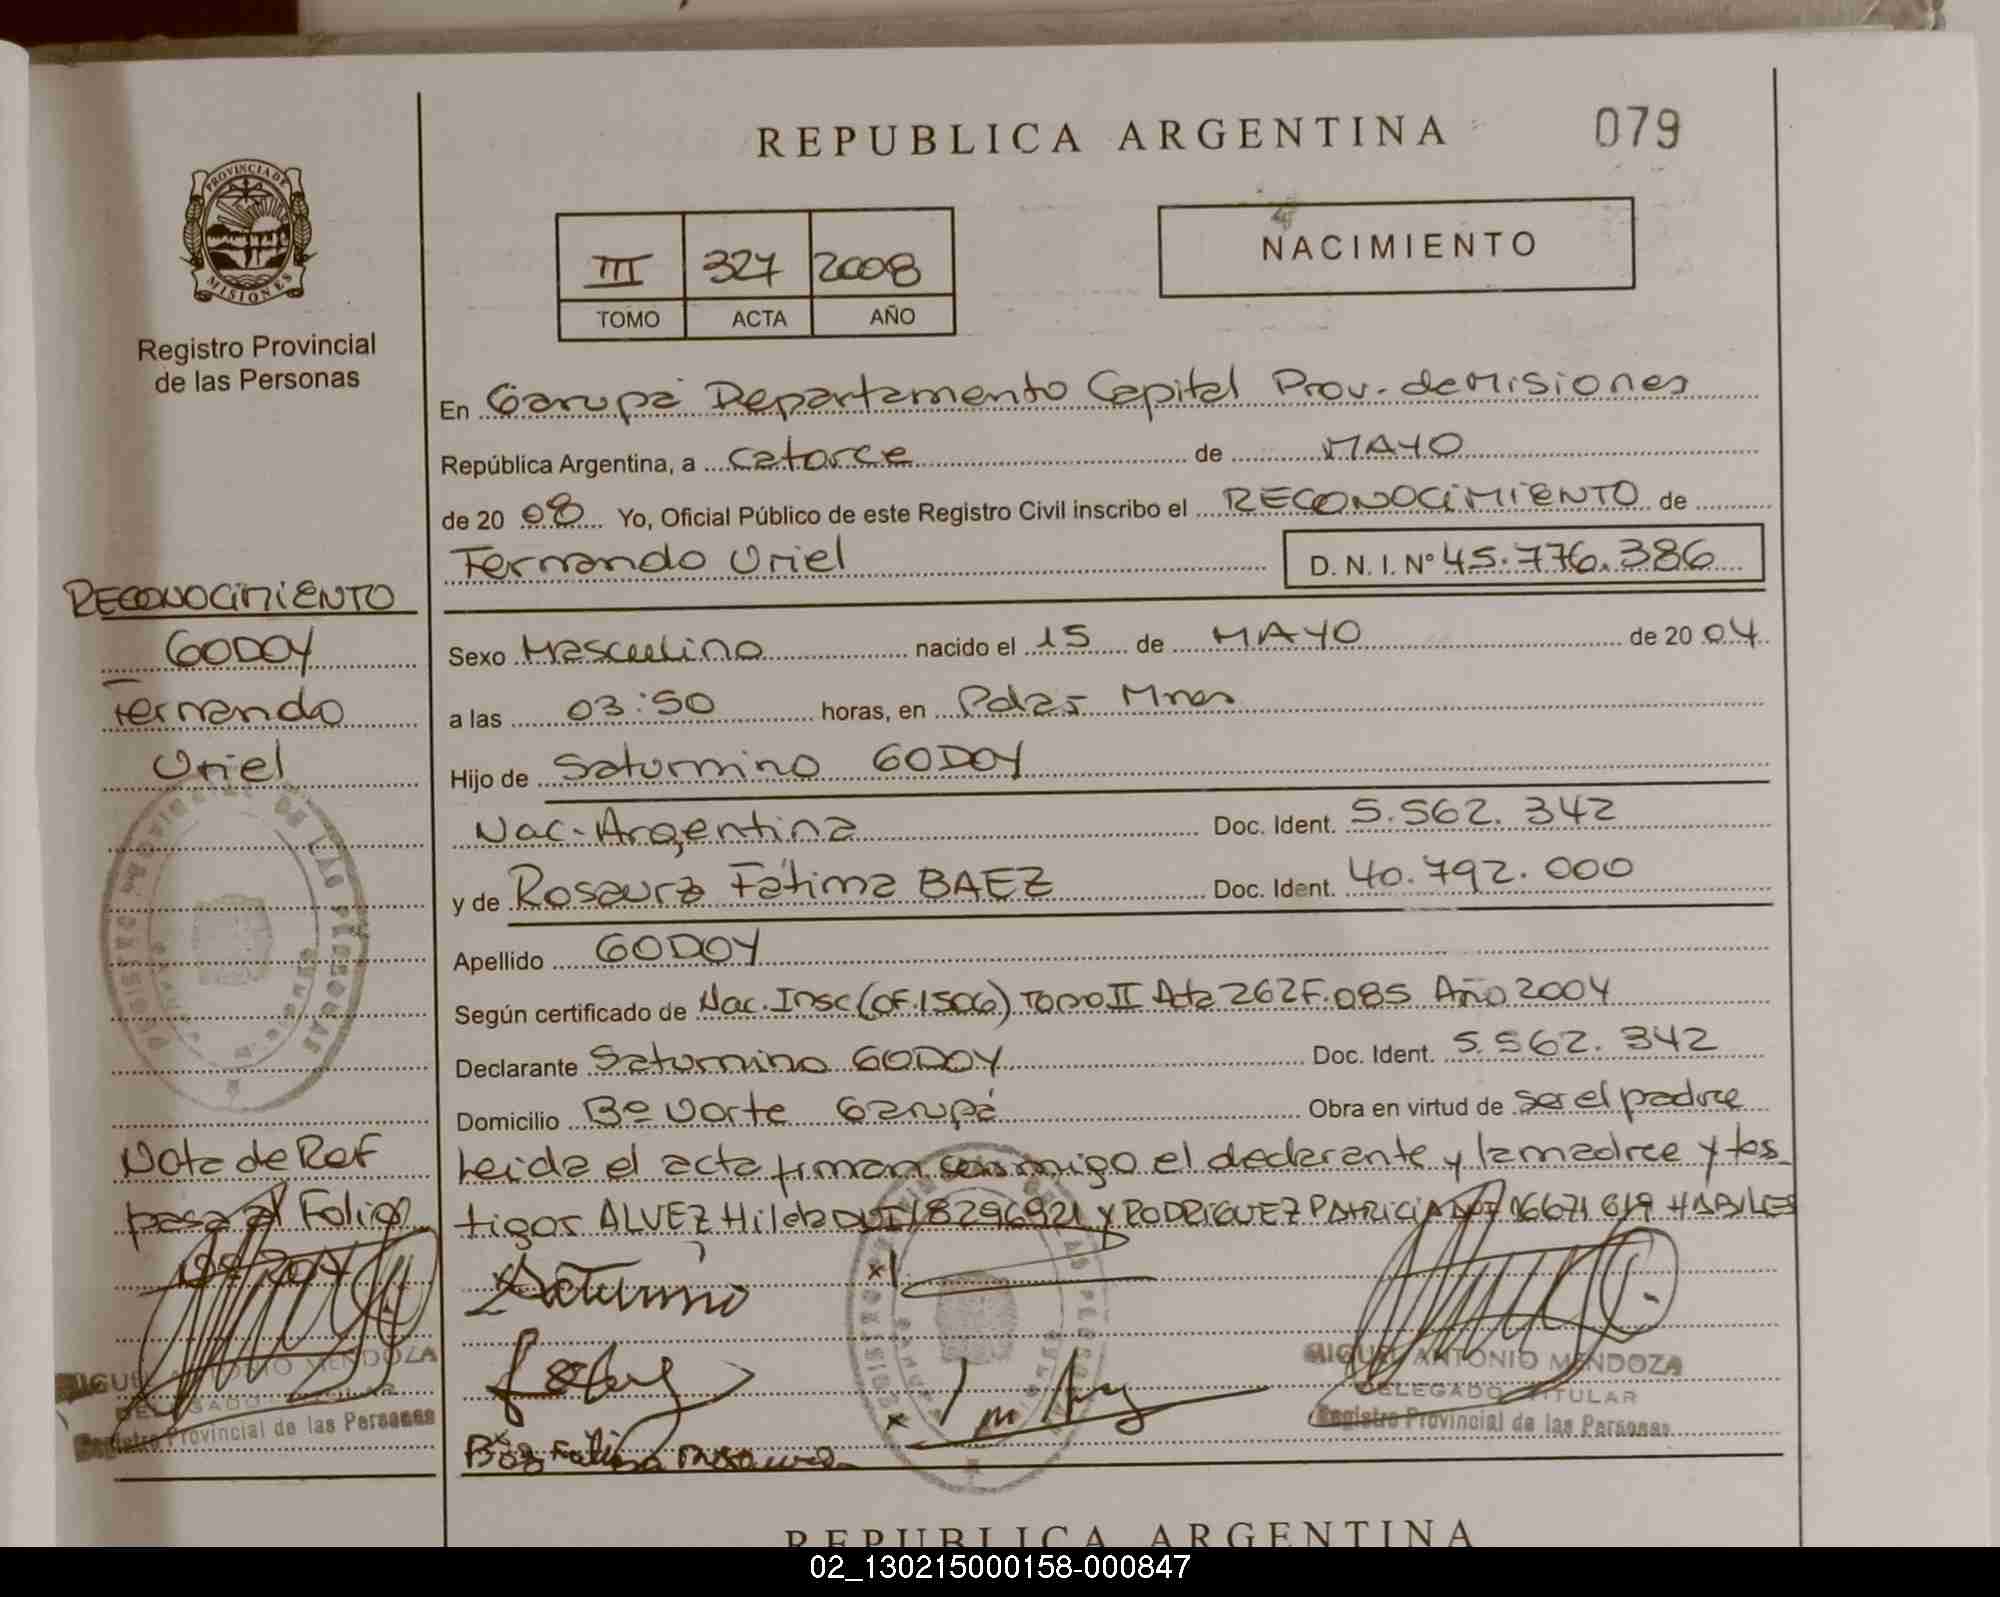 REPUBLICA ARGENTINA
079
PROVINCIA DE
MISIONES
Registro Provincial
de las Personas
III 327 2008
TOMO ACTA AÑO
NACIMIENTO
En Garupá Departamento Capital Prov. de Misiones
República Argentina, a catorce de MAYO
de 20 08 Yo, Oficial Público de este Registro Civil inscribo el RECONOCIMIENTO de
Fernando Uriel D. N. I. Nº 45.776.386
RECONOCIMIENTO
GODOY
Fernando
Uriel
Sexo Masculino nacido el 15 de MAYO de 20 04
a las 03:50 horas, en Pdas- Mnes
Hijo de Saturnino GODOY
Nac. Argentina Doc. Ident. 5.562.342
y de Rosaura Fátima BAEZ Doc. Ident. 40.792.000
Apellido GODOY
Según certificado de Nac. Insc (OF.1506) Tomo II Acta 262 F. 085 Año 2004
Declarante Saturnino GODOY Doc. Ident. 5.562.342
Domicilio Bº Norte Garupá Obra en virtud de ser el padre
Leida el acta firman conmigo el declarante y la madre y tes
tigos ALVEZ Hilda DNI 18296921 y RODRIGUEZ PATRICIA 16671619 HABILES
Nota de Ref
pasa al Folio
Saturnino
MIGUEL ANTONIO MENDOZA
DELEGADO TITULAR
Registro Provincial de las Personas
MIGUEL ANTONIO MENDOZA
DELEGADO TITULAR
Registro Provincial de las Personas
REPUBLICA ARGENTINA
02_130215000158-000847